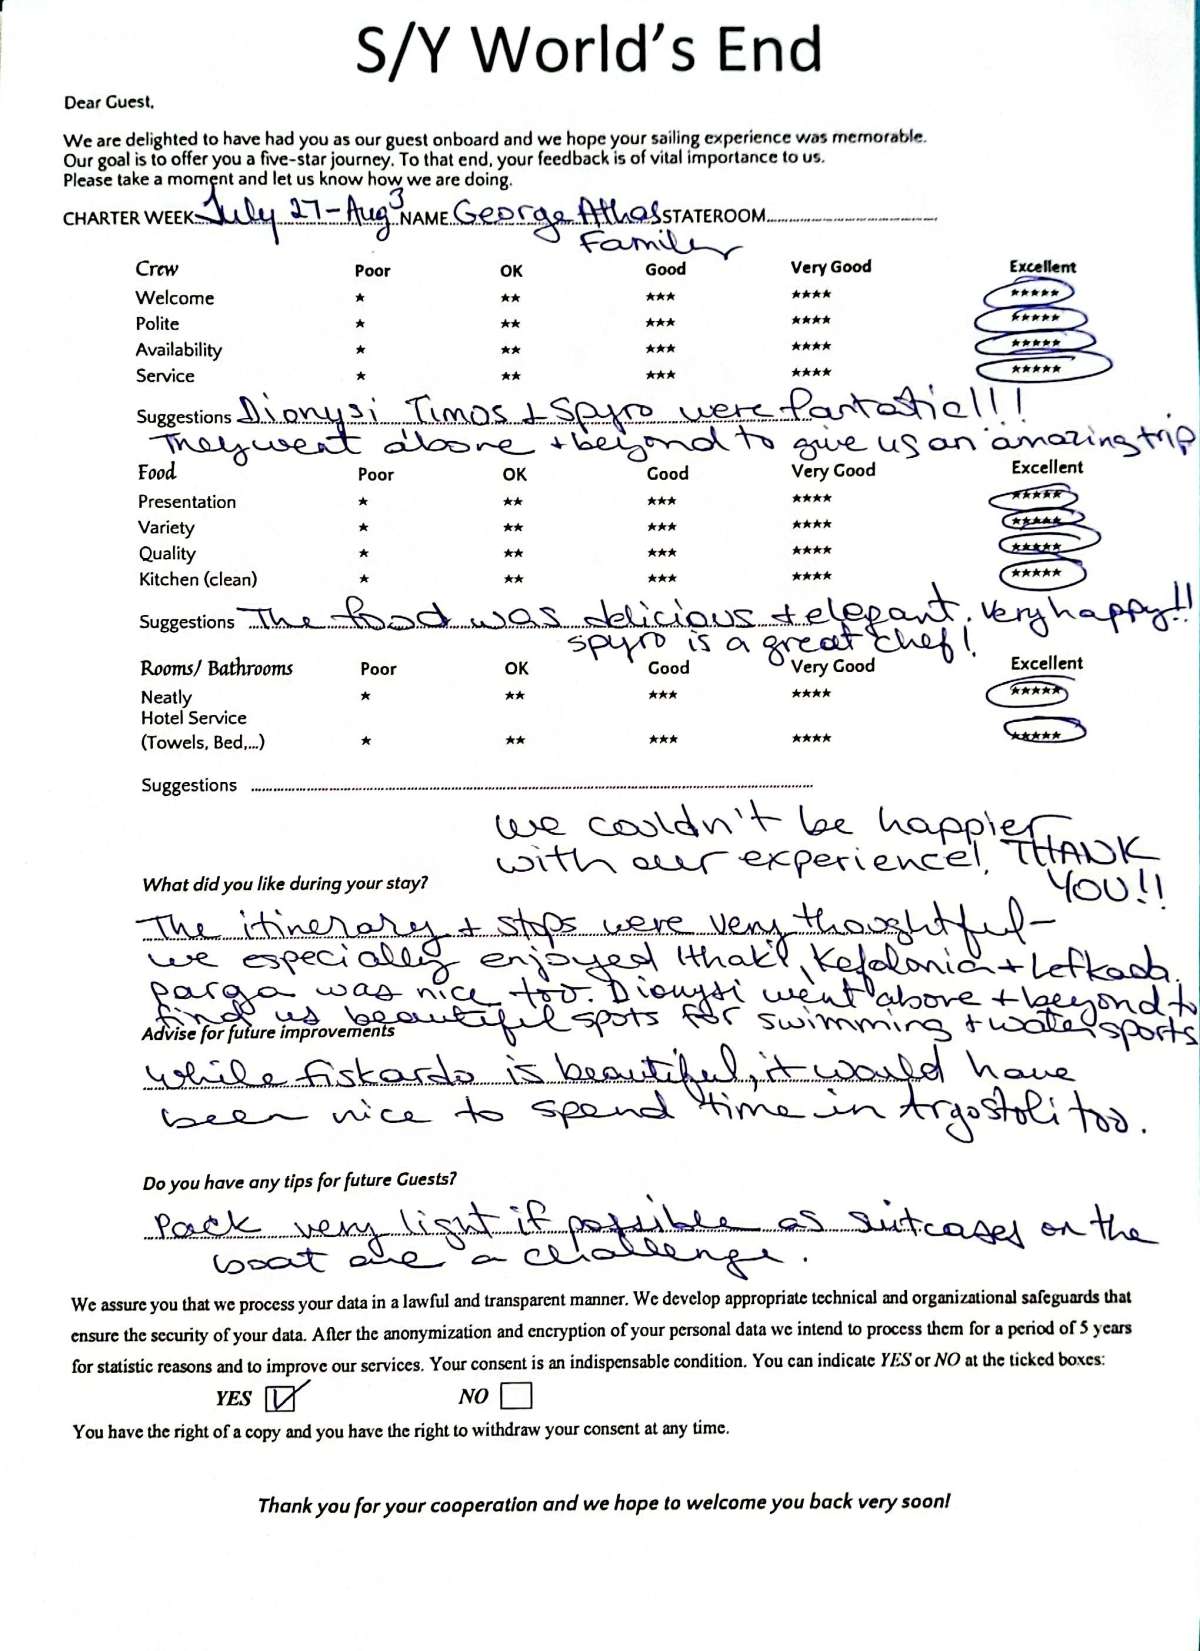 S/Y World's End
Dear Guest,
We are delighted to have had you as our guest onboard and we hope your sailing experience was memorable.
Our goal is to offer you a five-star journey. To that end, your feedback is of vital importance to us.
Please take a moment and let us know how we are doing.
CHARTER WEEK July 27-Aug 3 NAME George Athas STATEROOM
Family
Crew Poor OK Good Very Good Excellent
Welcome ★ ★★ ★★★ ★★★★ ★★★★★
Polite ★ ★★ ★★★ ★★★★ ★★★★★
Availability ★ ★★ ★★★ ★★★★ ★★★★★
Service ★ ★★ ★★★ ★★★★ ★★★★★
Suggestions Dionysi Timos + Spyro were fantastic!!!
They went above + beyond to give us an amazing trip
Food Poor OK Good Very Good Excellent
Presentation ★ ★★ ★★★ ★★★★ ★★★★★
Variety ★ ★★ ★★★ ★★★★ ★★★★★
Quality ★ ★★ ★★★ ★★★★ ★★★★★
Kitchen (clean) ★ ★★ ★★★ ★★★★ ★★★★★
Suggestions The food was delicious + elegant. Very happy!!
Spyro is a great chef!
Rooms/ Bathrooms Poor OK Good Very Good Excellent
Neatly ★ ★★ ★★★ ★★★★ ★★★★★
Hotel Service
(Towels, Bed,...) ★ ★★ ★★★ ★★★★ ★★★★★
Suggestions
We couldn't be happier
with our experience!. THANK
YOU!!
What did you like during your stay?
The itinerary + stops were very thoughtful-
we especially enjoyed Ithaki, Kefalonia + Lefkada.
Parga was nice too. Dionysi went above + beyond to
find us beautiful spots for swimming + water sports
Advise for future improvements
While Fiskardo is beautiful, it would have
been nice to spend time in Argostoli too.
Do you have any tips for future Guests?
Pack very light if possible as suitcases on the
boat are a challenge.
We assure you that we process your data in a lawful and transparent manner. We develop appropriate technical and organizational safeguards that
ensure the security of your data. After the anonymization and encryption of your personal data we intend to process them for a period of 5 years
for statistic reasons and to improve our services. Your consent is an indispensable condition. You can indicate YES or NO at the ticked boxes:
YES ☑ NO ☐
You have the right of a copy and you have the right to withdraw your consent at any time.
Thank you for your cooperation and we hope to welcome you back very soon!